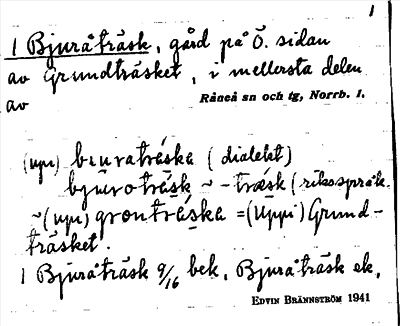 1
1 Bjuråträsk, gård på Ö. sidan
av Grundträsket, i mellersta delen
av Råneå sn och tg, Norrb. l.
(upi) biuvatræska (dialekt)
bjuvotræsk ~ -træsk (riksspråk.
~ (upi) grontræska = (Uppi) Grund-
träsket.
1 Bjuråträsk 9/16 bek. Bjuråträsk ek.
EDVIN BRÄNNSTRÖM 1941